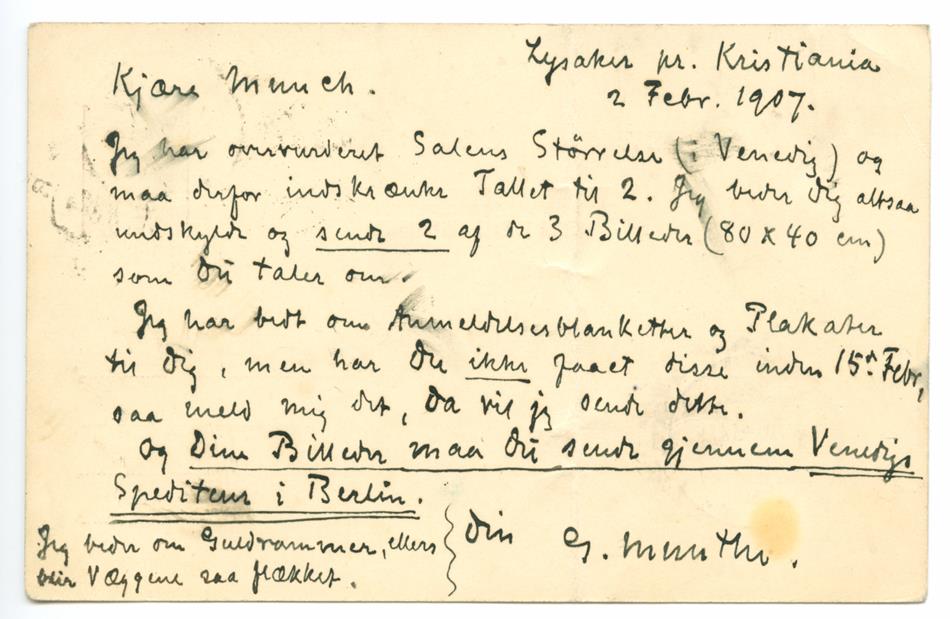 Lysaker pr. Kristiania
2 Febr. 1907.
Kjære Munch.
Jeg har overvurderet Salens Störrelse (i Venedig) og
maa derfor indskrænke Tallet til 2. Jeg beder Dig altsaa
undskylde og sende 2 af de 3 Billeder (80 x 40 cm)
som Du taler om.
Jeg har bedt om Anmeldelsesblanketter og Plakater
til Dig, men har Du ikke faaet disse inden 15de Febr,
saa meld mig det, da vil jeg sende dette.
Og Dine Billeder maa Du sende gjennem Venedigs
Spediteur i Berlin.
Jeg beder om Guldrammer, ellers
blir Væggene saa flækket.
Din G. Munthe.